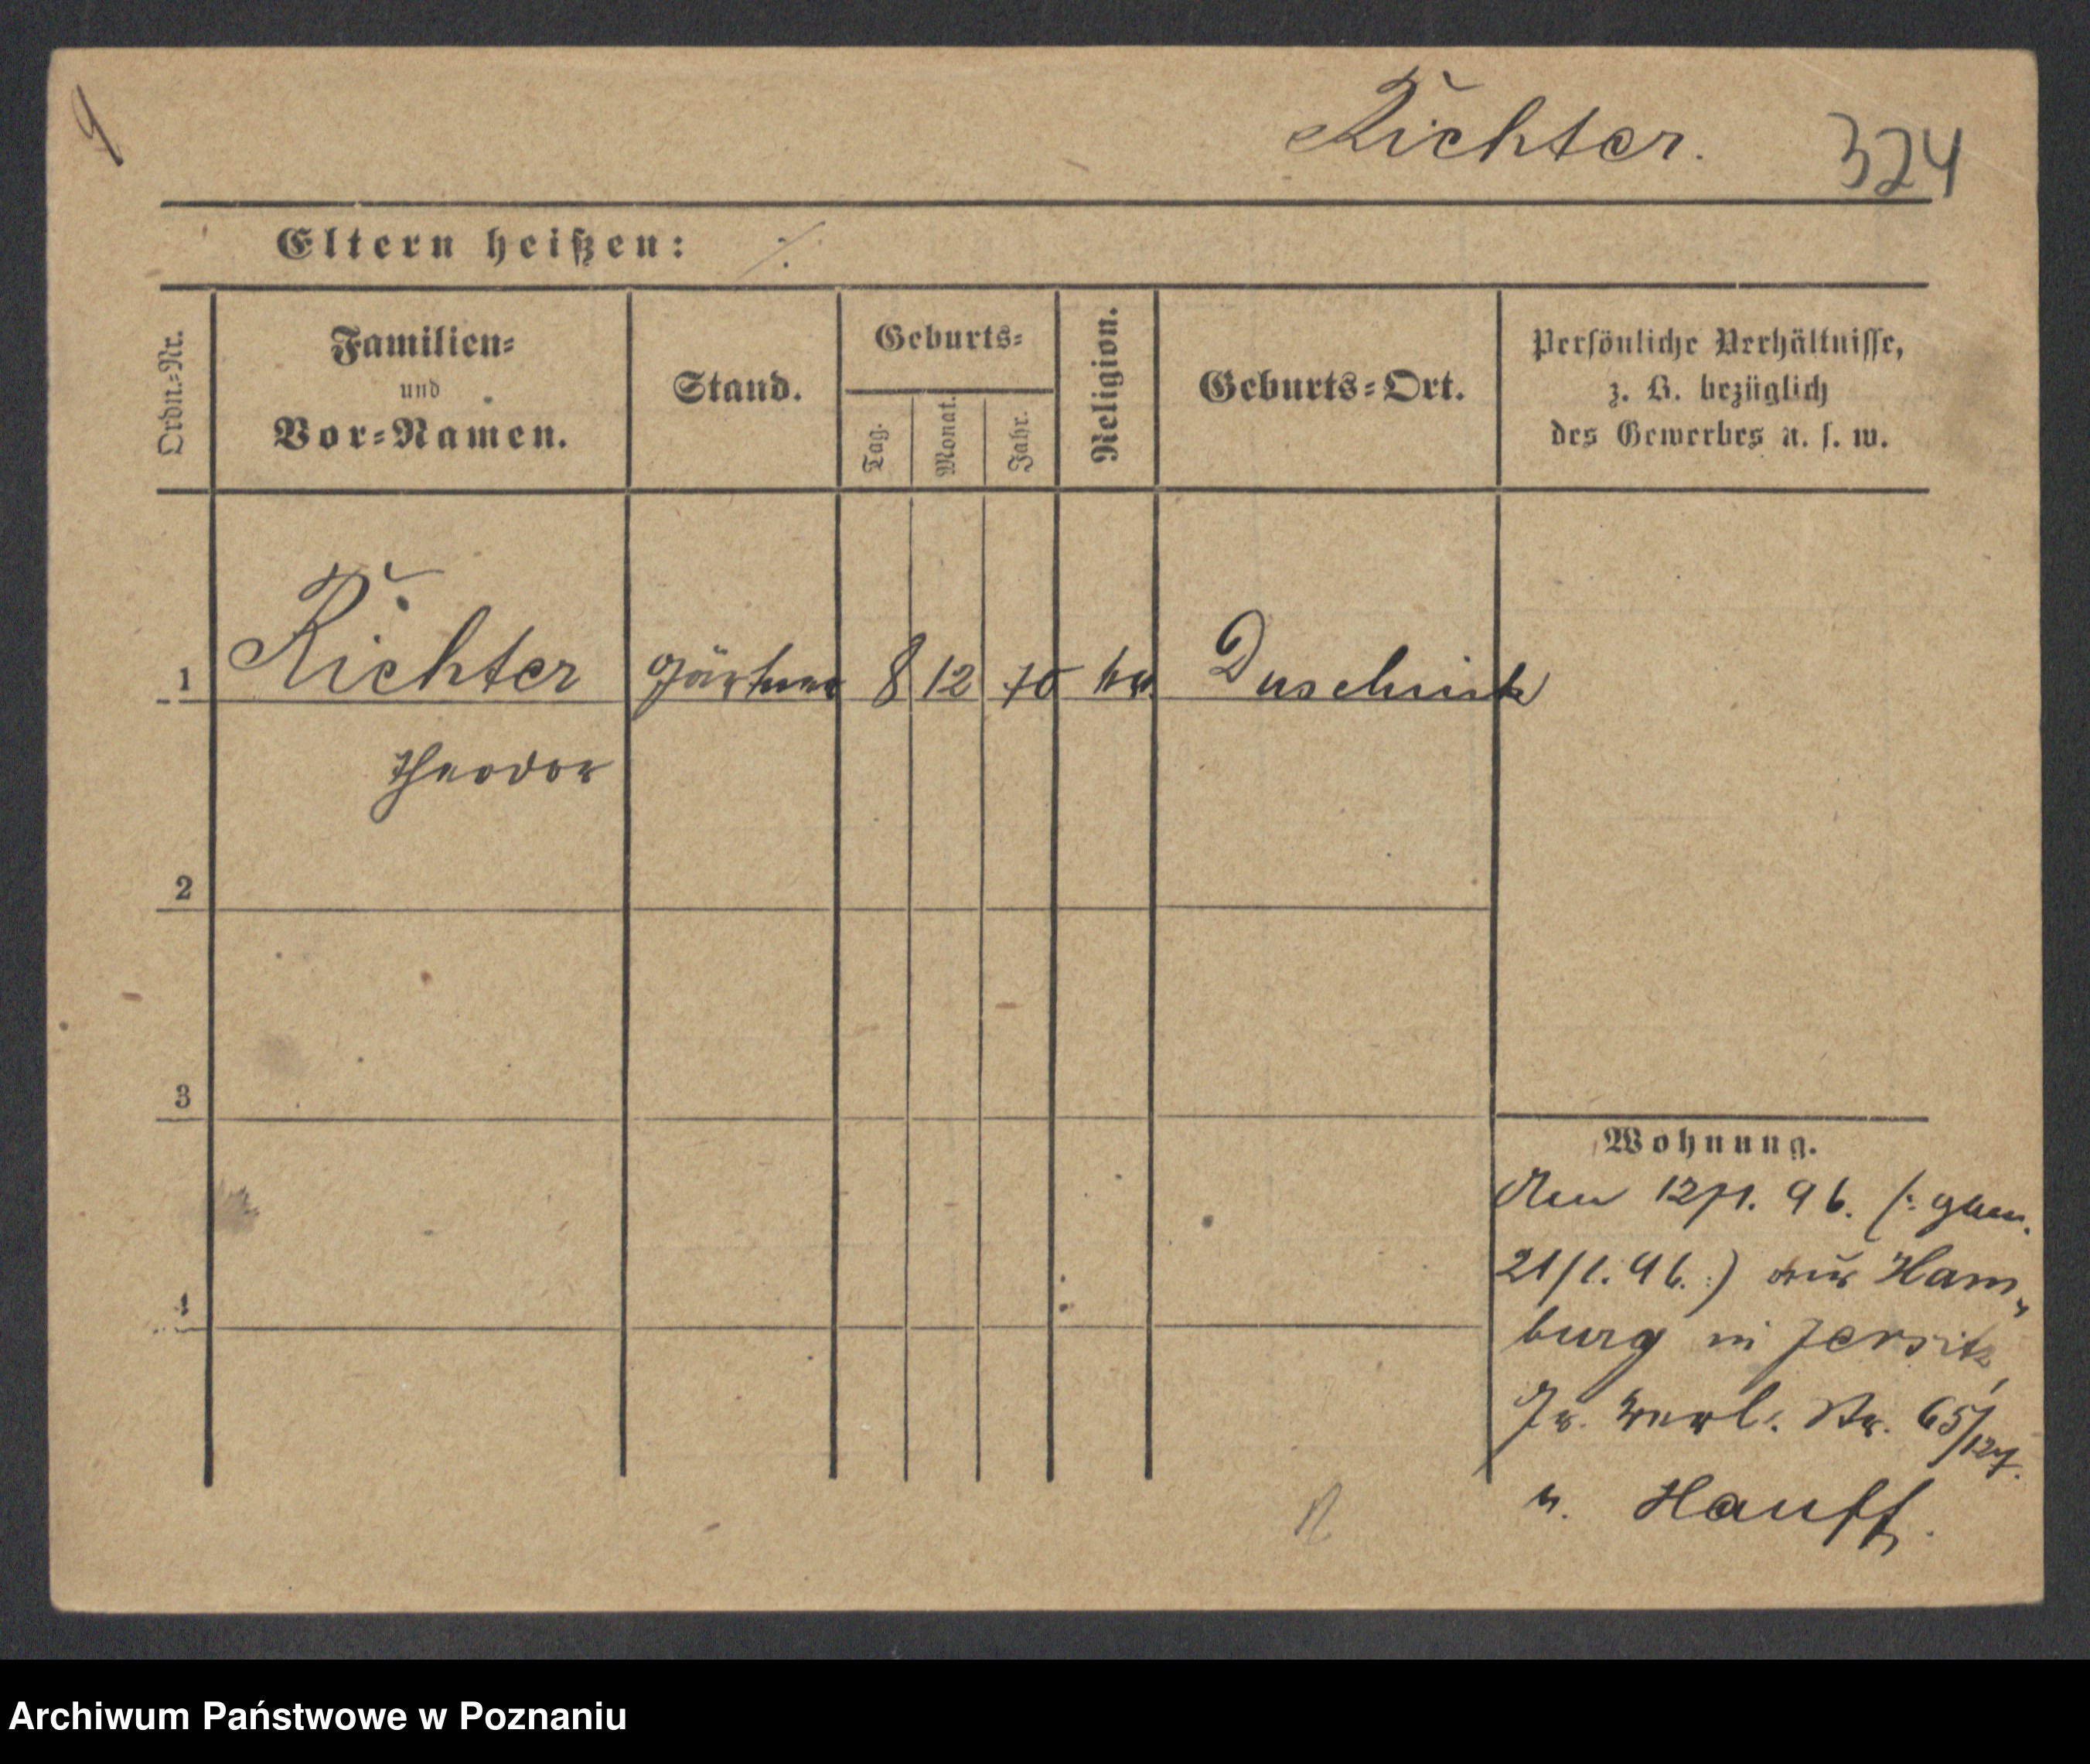 Richter. 324
Eltern heißen: ⁒
Ordn.=Nr.
Familien=
und
Vor=Namen.
Stand.
Geburts=
Tag.
Monat.
Jahr.
Religion.
Geburts=Ort.
Persönliche Verhältnisse,
z. B. bezüglich
des Gewerbes u. s. w.
1 Richter Gärtner 8 12 70 Duschnik
Theodor
2
3
4
Wohnung.
12/1. 96. (: gem.
21/1. 96. :) aus Ham„
burg in Jersitz,
Gr. Berl. Str. 65/127.
b. Hauff.
Archiwum Państwowe w Poznaniu